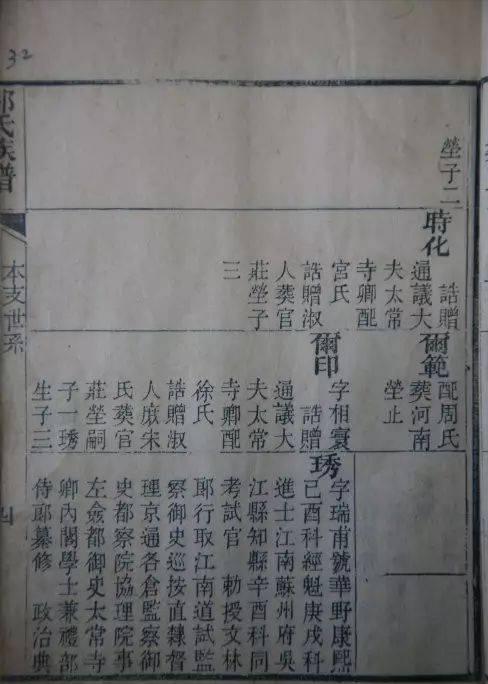 32
塋子二
時化
誥贈
通議大
夫太常
寺卿配
宮氏
誥贈淑
人葬官
莊塋子
三
爾範
配周氏
葬河南
塋止
爾印
字相寰
誥贈
通議大
夫太常
寺卿配
徐氏
誥贈淑
人庶宋
氏葬官
莊塋嗣
子一琇
生子三
琇
字瑞甫號華野康熙
己酉科經魁庚戌科
進士江南蘇州府吳
江縣知縣辛酉科同
考試官 勅授文林
郎行取江南道試監
察御史巡按直隸督
理京通各倉監察御
史都察院協理院事
左僉都御史太常寺
卿內閣學士兼禮部
侍郎纂修 政治典
氏族譜
本支世系